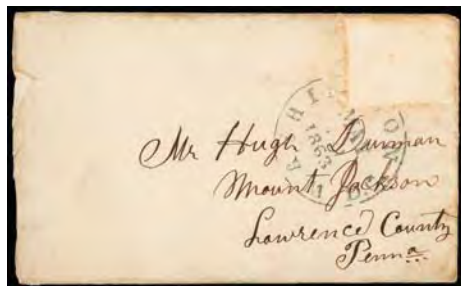 1863
Mr Hugh
Mount Jackson
Lawrence County
Penna